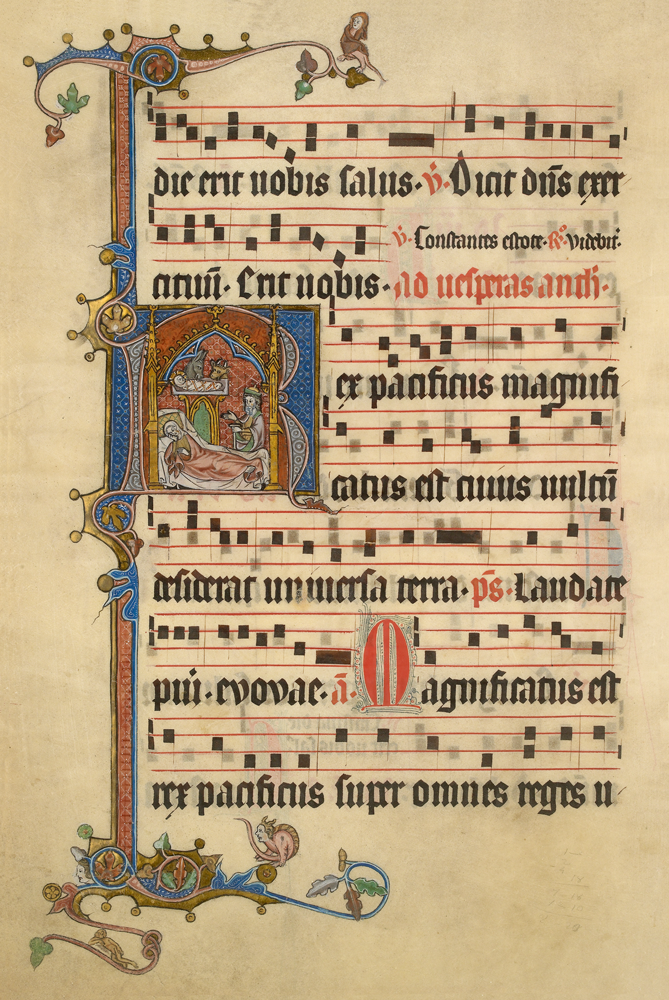 die erit uobis salus· v̄· Dicit dn̄s exer
v̄· Constantes estote· R̄· videbit̄·
cituū· Erit uobis· ad uesperas anth̄·
Rex pacificus magnifi
catus est cuius uultū
desiderat uniuersa terra· ps̄· Laudate
puī· evovae· ā· Magnificatus est
rex pacificus super omnes reges u